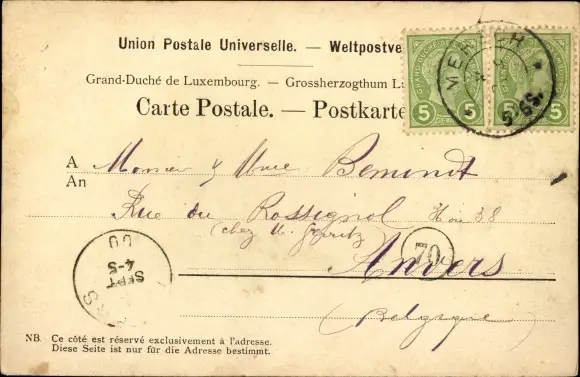 Union Postale Universelle. — Weltpostve
Grand-Duché de Luxembourg. — Grossherzogthum L
Carte Postale. — Postkarte
MERSCH
5 5
A Monsieur & Mme
An
Rue du Rossignol 38
(chez M.
70
Anvers
(Belgique)
SEPT
4-5
00
NB. Ce côté est réservé exclusivement à l'adresse.
Diese Seite ist nur für die Adresse bestimmt.